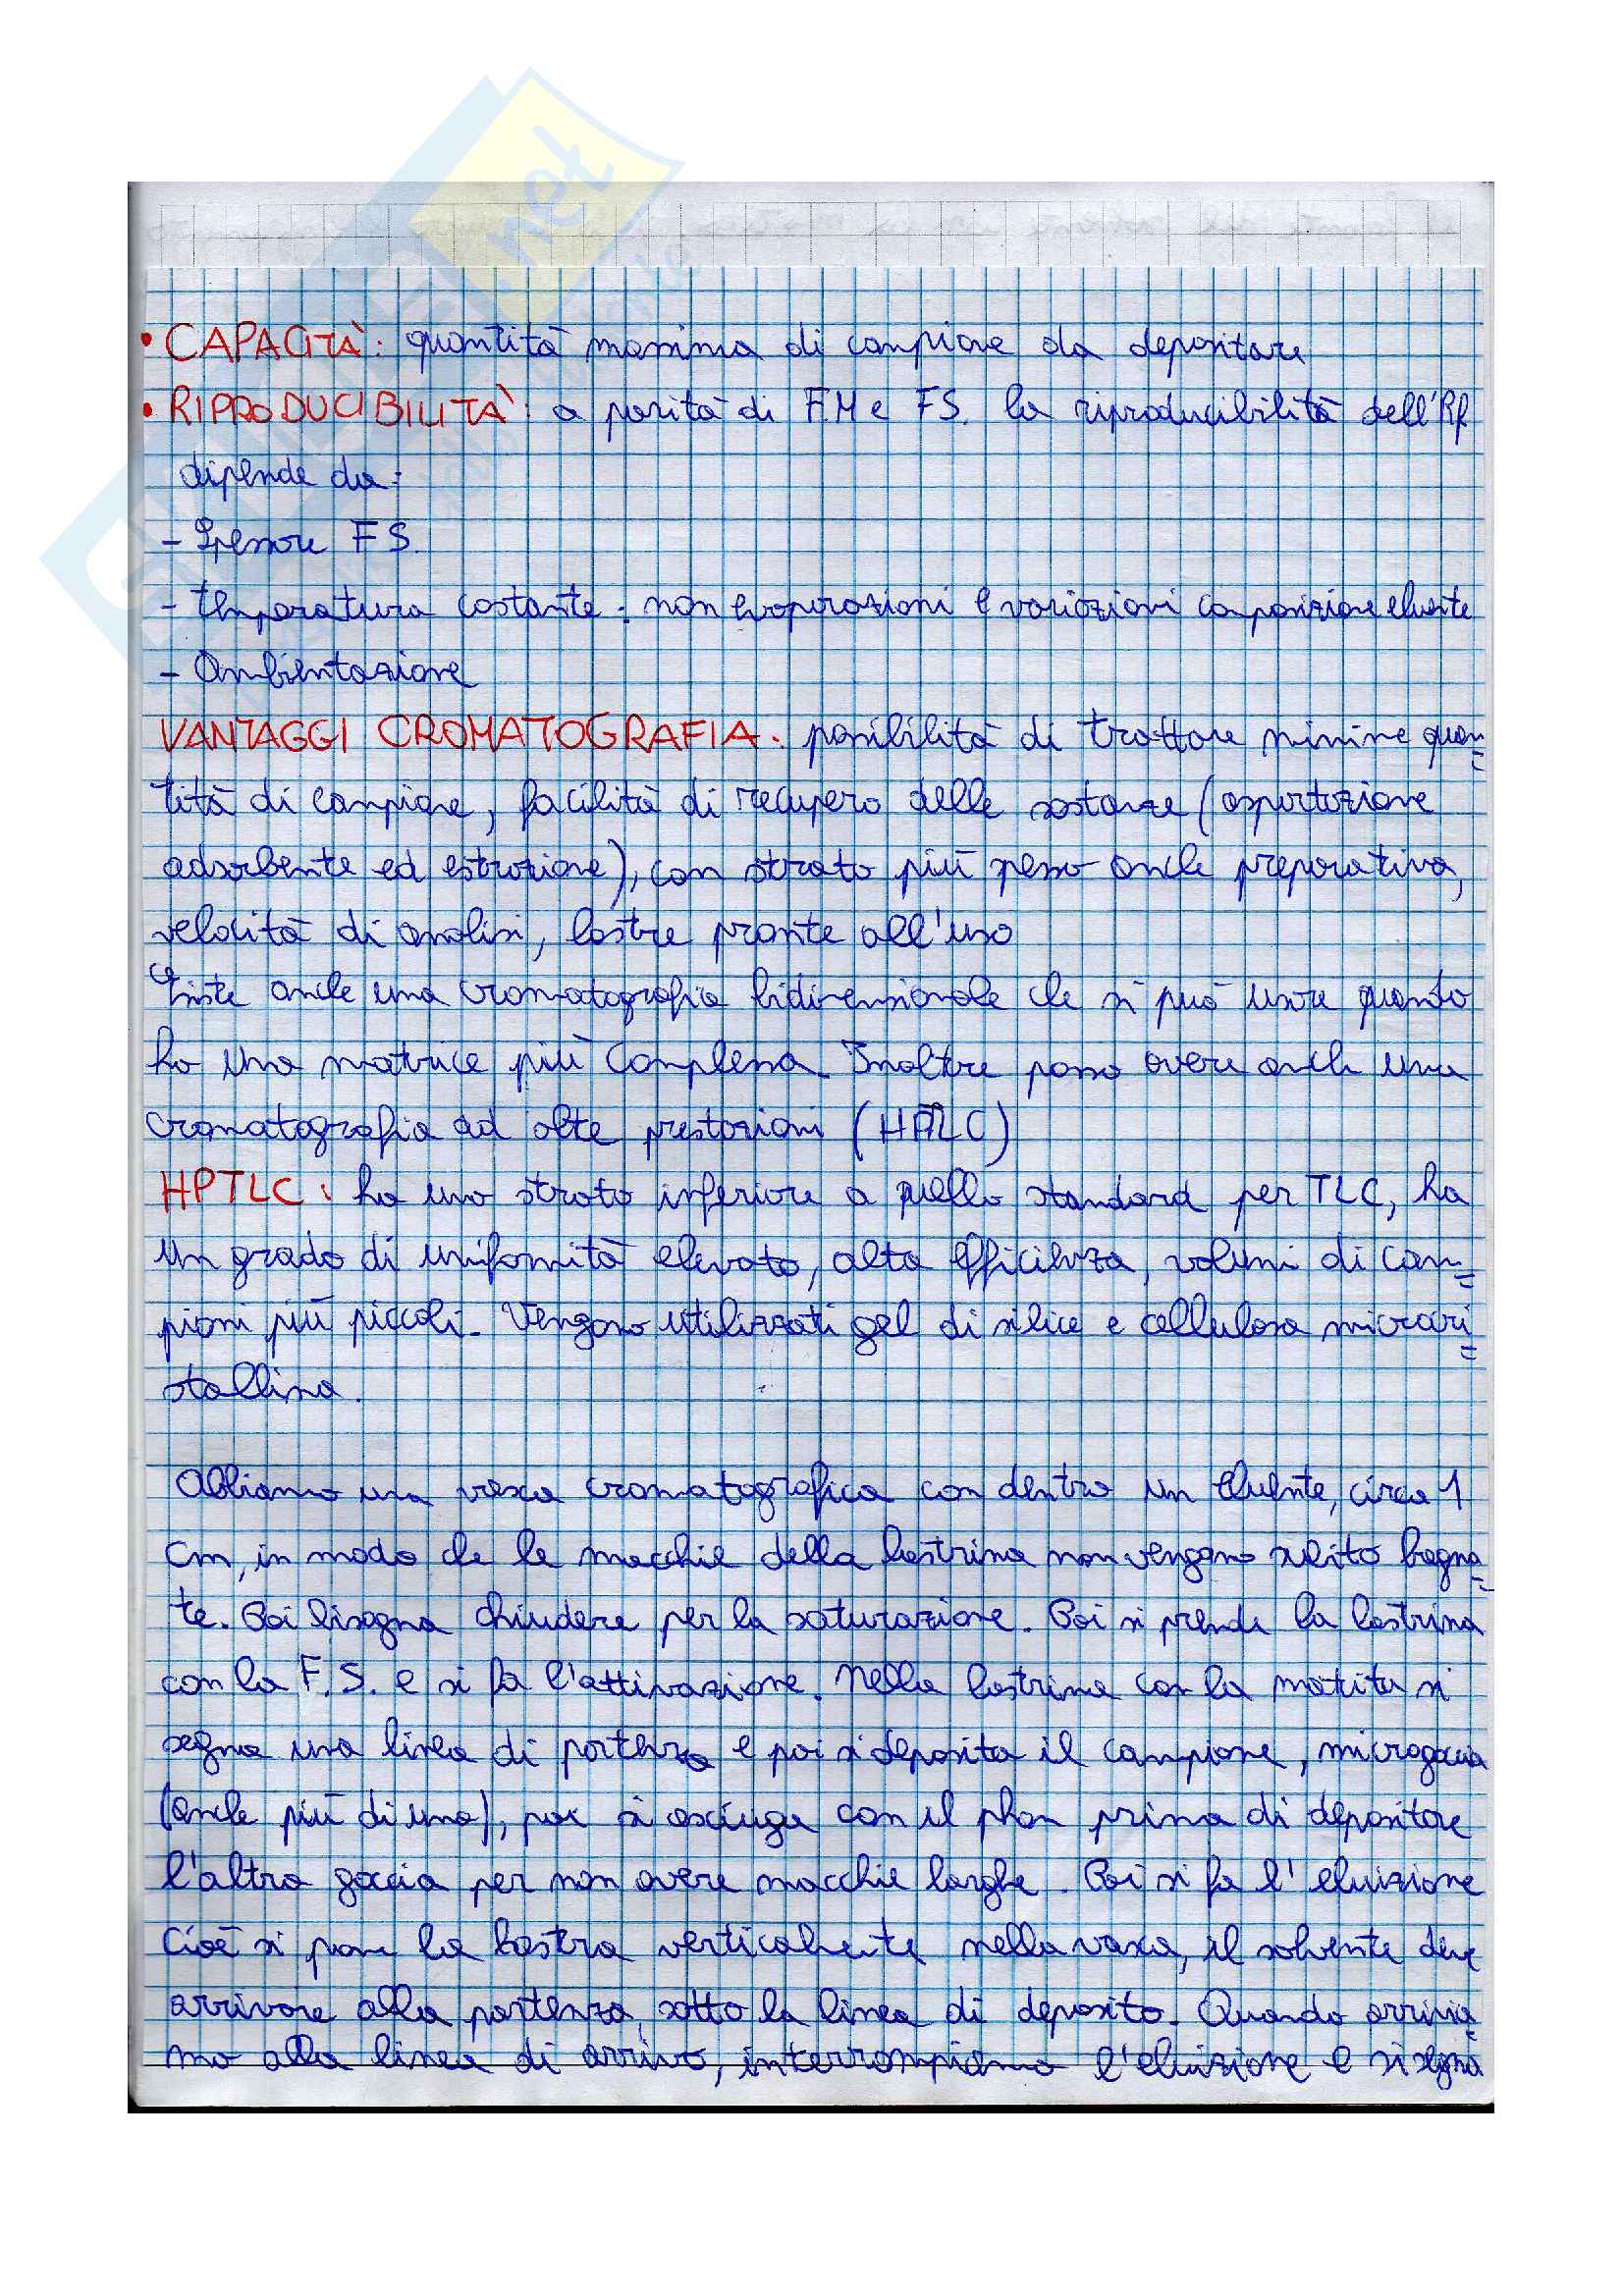 • CAPACITÀ: quantità massima di campione da depositare
• RIPRODUCIBILITÀ: a parità di F.M e FS. la riproducibilità dell'Rf
dipende da:
- Spessore FS.
- temperatura costante: non evaporazioni e variazioni composizione eluente
- Ambientazione
VANTAGGI CROMATOGRAFIA: possibilità di trattare minime quan=
tità di campione, facilità di recupero delle sostanze (asportazione
adsorbente ed estrazione), con strato più spesso anche preparativa,
velocità di analisi, lastre pronte all'uso
Esiste anche una cromatografia bidimensionale che si può usare quando
ho una matrice più complessa. Inoltre posso avere anche una
cromatografia ad alte prestazioni (HPTLC)
HPTLC: ha uno strato inferiore a quello standard per TLC, ha
un grado di uniformità elevato, alta efficienza, volumi di cam=
pioni più piccoli. Vengono utilizzati gel di silice e cellulosa microcri=
stallina.
Abbiamo una vasca cromatografica con dentro un eluente, circa 1
cm, in modo che le macchie della lastrina non vengano subito bagna=
te. Poi bisogna chiudere per la saturazione. Poi si prende la lastrina
con la F.S. e si fa l'attivazione. Nella lastrina con la matita si
segna una linea di partenza e poi si deposita il campione, microgoccia
(anche più di una), poi si asciuga con il phon prima di depositare
l'altra goccia per non avere macchie larghe. Poi si fa l'eluizione
cioè si pone la lastra verticalmente nella vasca, il solvente deve
arrivare alla partenza, sotto la linea di deposito. Quando arrivia=
mo alla linea di arrivo, interrompiamo l'eluizione e si segna
.net